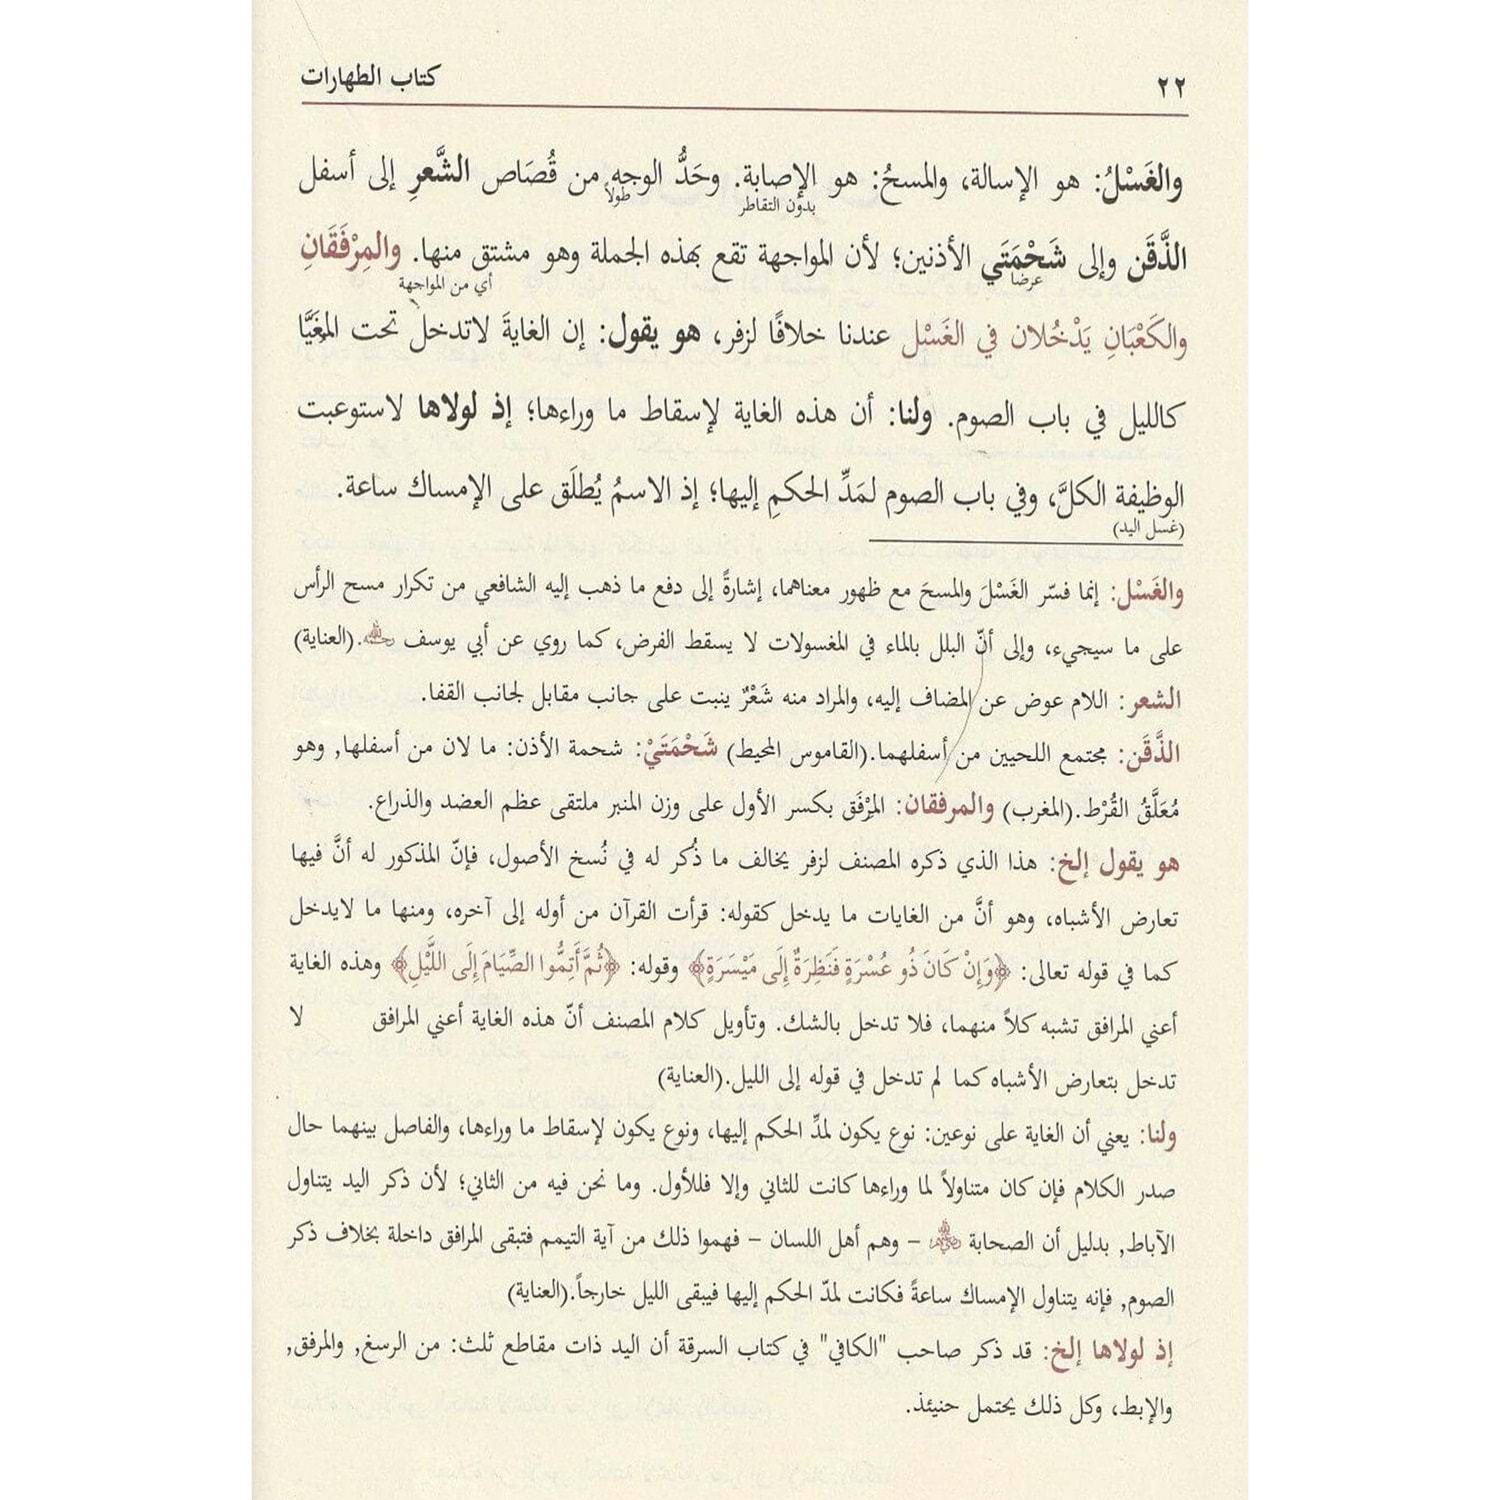 ٢٢
كتاب الطهارات
والغَسْلُ: هو الإسالة، والمسحُ: هو الإصابة. وحَدُّ الوجهِ من قُصَاص الشَّعرِ إلى أسفل
بدون التقاطر طولاً
الذَّقَن وإلى شَحْمَتَي الأذنين؛ لأن المواجهة تقع بهذه الجملة وهو مشتق منها. والمِرْفَقَانِ
عرضا أي من المواجهة
والكَعْبَانِ يَدْخُلان في الغَسْل عندنا خلافًا لزفر، هو يقول: إن الغايةَ لاتدخل تحت المغَيَّا
كالليل في باب الصوم. ولنا: أن هذه الغاية لإسقاط ما وراءها؛ إذ لولاها لاستوعبت
الوظيفة الكلَّ، وفي باب الصوم لمَدِّ الحكمِ إليها؛ إذ الاسمُ يُطلَق على الإمساك ساعة.
(غسل اليد)
والغَسْل: إنما فسّر الغَسْلَ والمسحَ مع ظهور معناهما، إشارةً إلى دفع ما ذهب إليه الشافعي من تكرار مسح الرأس
على ما سيجيء، وإلى أنّ البلل بالماء في المغسولات لا يسقط الفرض، كما روي عن أبي يوسف رحمه الله.(العناية)
الشعر: اللام عوض عن المضاف إليه، والمراد منه شَعْرٌ ينبت على جانب مقابل لجانب القفا.
الذَّقَن: مجتمع اللحيين من أسفلهما.(القاموس المحيط) شَحْمَتَيْ: شحمة الأذن: ما لان من أسفلها, وهو
مُعَلَّقُ القُرْط.(المغرب) والمرفقان: المِرْفَق بكسر الأول على وزن المنبر ملتقى عظم العضد والذراع.
هو يقول إلخ: هذا الذي ذكره المصنف لزفر يخالف ما ذُكر له في نُسخ الأصول، فإنّ المذكور له أنَّ فيها
تعارض الأشباه، وهو أنَّ من الغايات ما يدخل كقوله: قرأت القرآن من أوله إلى آخره، ومنها ما لايدخل
كما في قوله تعالى: ﴿وَإِنْ كَانَ ذُو عُسْرَةٍ فَنَظِرَةٌ إِلَى مَيْسَرَةٍ﴾ وقوله: ﴿ثُمَّ أَتِمُّوا الصِّيَامَ إِلَى اللَّيْلِ﴾ وهذه الغاية
أعني المرافق تشبه كلاً منهما، فلا تدخل بالشك. وتأويل كلام المصنف أنّ هذه الغاية أعني المرافق لا
تدخل بتعارض الأشباه كما لم تدخل في قوله إلى الليل.(العناية)
ولنا: يعني أن الغاية على نوعين: نوع يكون لمدِّ الحكم إليها، ونوع يكون لإسقاط ما وراءها، والفاصل بينهما حال
صدر الكلام فإن كان متناولاً لما وراءها كانت للثاني وإلا فللأول. وما نحن فيه من الثاني؛ لأن ذكر اليد يتناول
الآباط, بدليل أن الصحابة رضي الله عنهم – وهم أهل اللسان – فهموا ذلك من آية التيمم فتبقى المرافق داخلة بخلاف ذكر
الصوم, فإنه يتناول الإمساك ساعةً فكانت لمدّ الحكم إليها فيبقى الليل خارجاً.(العناية)
إذ لولاها إلخ: قد ذكر صاحب "الكافي" في كتاب السرقة أن اليد ذات مقاطع ثلث: من الرسغ, والمرفق,
والإبط، وكل ذلك يحتمل حنيئذ.